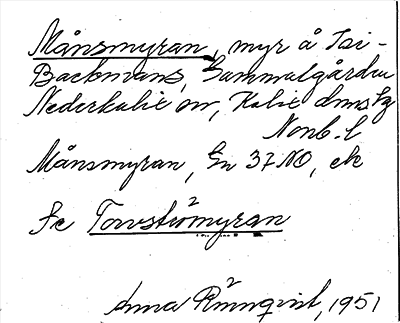 Månsmyran, myr å Isi-
Backmans, Gammalgården
Nederkalix ov, Kalix dmstg
Nonb. l
Månsmyran, En 37 NO, ek
Se Torvströmyran
2
Anna Rönnqvist, 1951
2